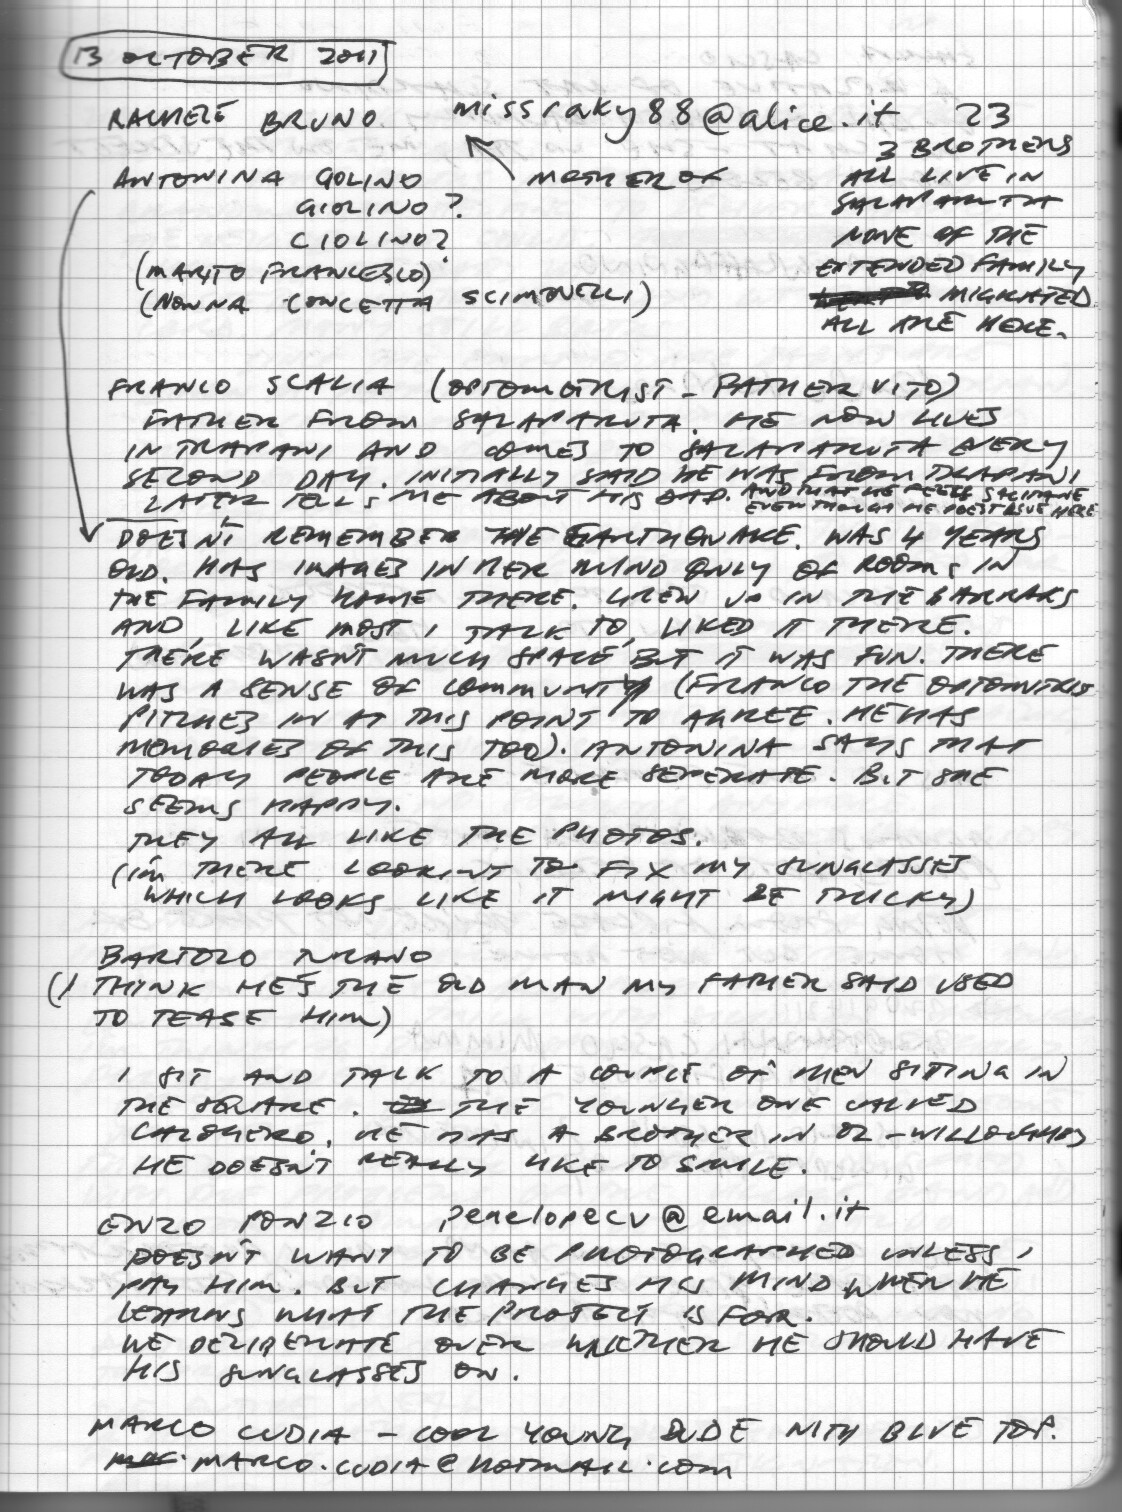 13 OCTOBER 2011
RACHELE BRUNO missraky88@alice.it 23
3 BROTHERS
ANTONINA GOLINO MOTHER OF ALL LIVE IN
GIOLINO? SALAPARUTA
CIOLINO? NONE OF THE
(MARITO FRANCESCO) EXTENDED FAMILY
(NONNA CONCETTA SCIMONELLI) MIGRATED
ALL ARE HERE.
FRANCO SCALIA (OPTOMETRIST - FATHER VITO)
FATHER FROM SALAPARUTA. HE NOW LIVES
IN TRAPANI AND COMES TO SALAPARUTA EVERY
SECOND DAY. INITIALLY SAID HE WAS FROM TRAPANI
LATER TELLS ME ABOUT HIS DAD. AND THAT HE FEELS SALITANE
EVEN THOUGH HE DOESN'T LIVE HERE
DOESN'T REMEMBER THE EARTHQUAKE. WAS 4 YEARS
OLD. HAS IMAGES IN HER MIND ONLY OF ROOMS IN
THE FAMILY HOME THERE. GREW UP IN THE BARRAKS
AND, LIKE MOST I TALK TO, LIKED IT THERE.
THERE WASN'T MUCH SPACE BUT IT WAS FUN. THERE
WAS A SENSE OF COMMUNITY (FRANCO THE OPTOMTRIS
PITCHES IN AT THIS POINT TO AGREE. HE HAS
MEMORIES OF THIS TOO). ANTONINA SAYS THAT
TODAY PEOPLE ARE MORE SEPERATE. BUT SHE
SEEMS HAPPY.
THEY ALL LIKE THE PHOTOS.
(I'M THERE LOOKINT TO FIX MY SUNGLASSES
WHICH LOOKS LIKE IT MIGHT BE TRICKY)
BARTOLO TURANO
(I THINK HE'S THE OLD MAN MY FATHER SAID USED
TO TEASE HIM)
I SIT AND TALK TO A COUPLE OF MEN SITTING IN
THE SQUARE. THE YOUNGER ONE CALLED
CALOGERO. HE HAS A BROTHER IN OZ - WILLOUGHBY
HE DOESN'T REALLY LIKE TO SMILE.
ENZO PONZIO penelopecv@email.it
DOESN'T WANT TO BE PHOTOGRAPHED UNLESS I
PAY HIM. BUT CHANGES HIS MIND WHEN HE
LEARNS WHAT THE PROJECT IS FOR.
WE DELIBERATE OVER WHETHER HE SHOULD HAVE
HIS SUNGLASSES ON.
MARCO CUDIA - COOL YOUNG DUDE WITH BLUE TOP.
MARCO.CUDIA@HOTMAIL.COM